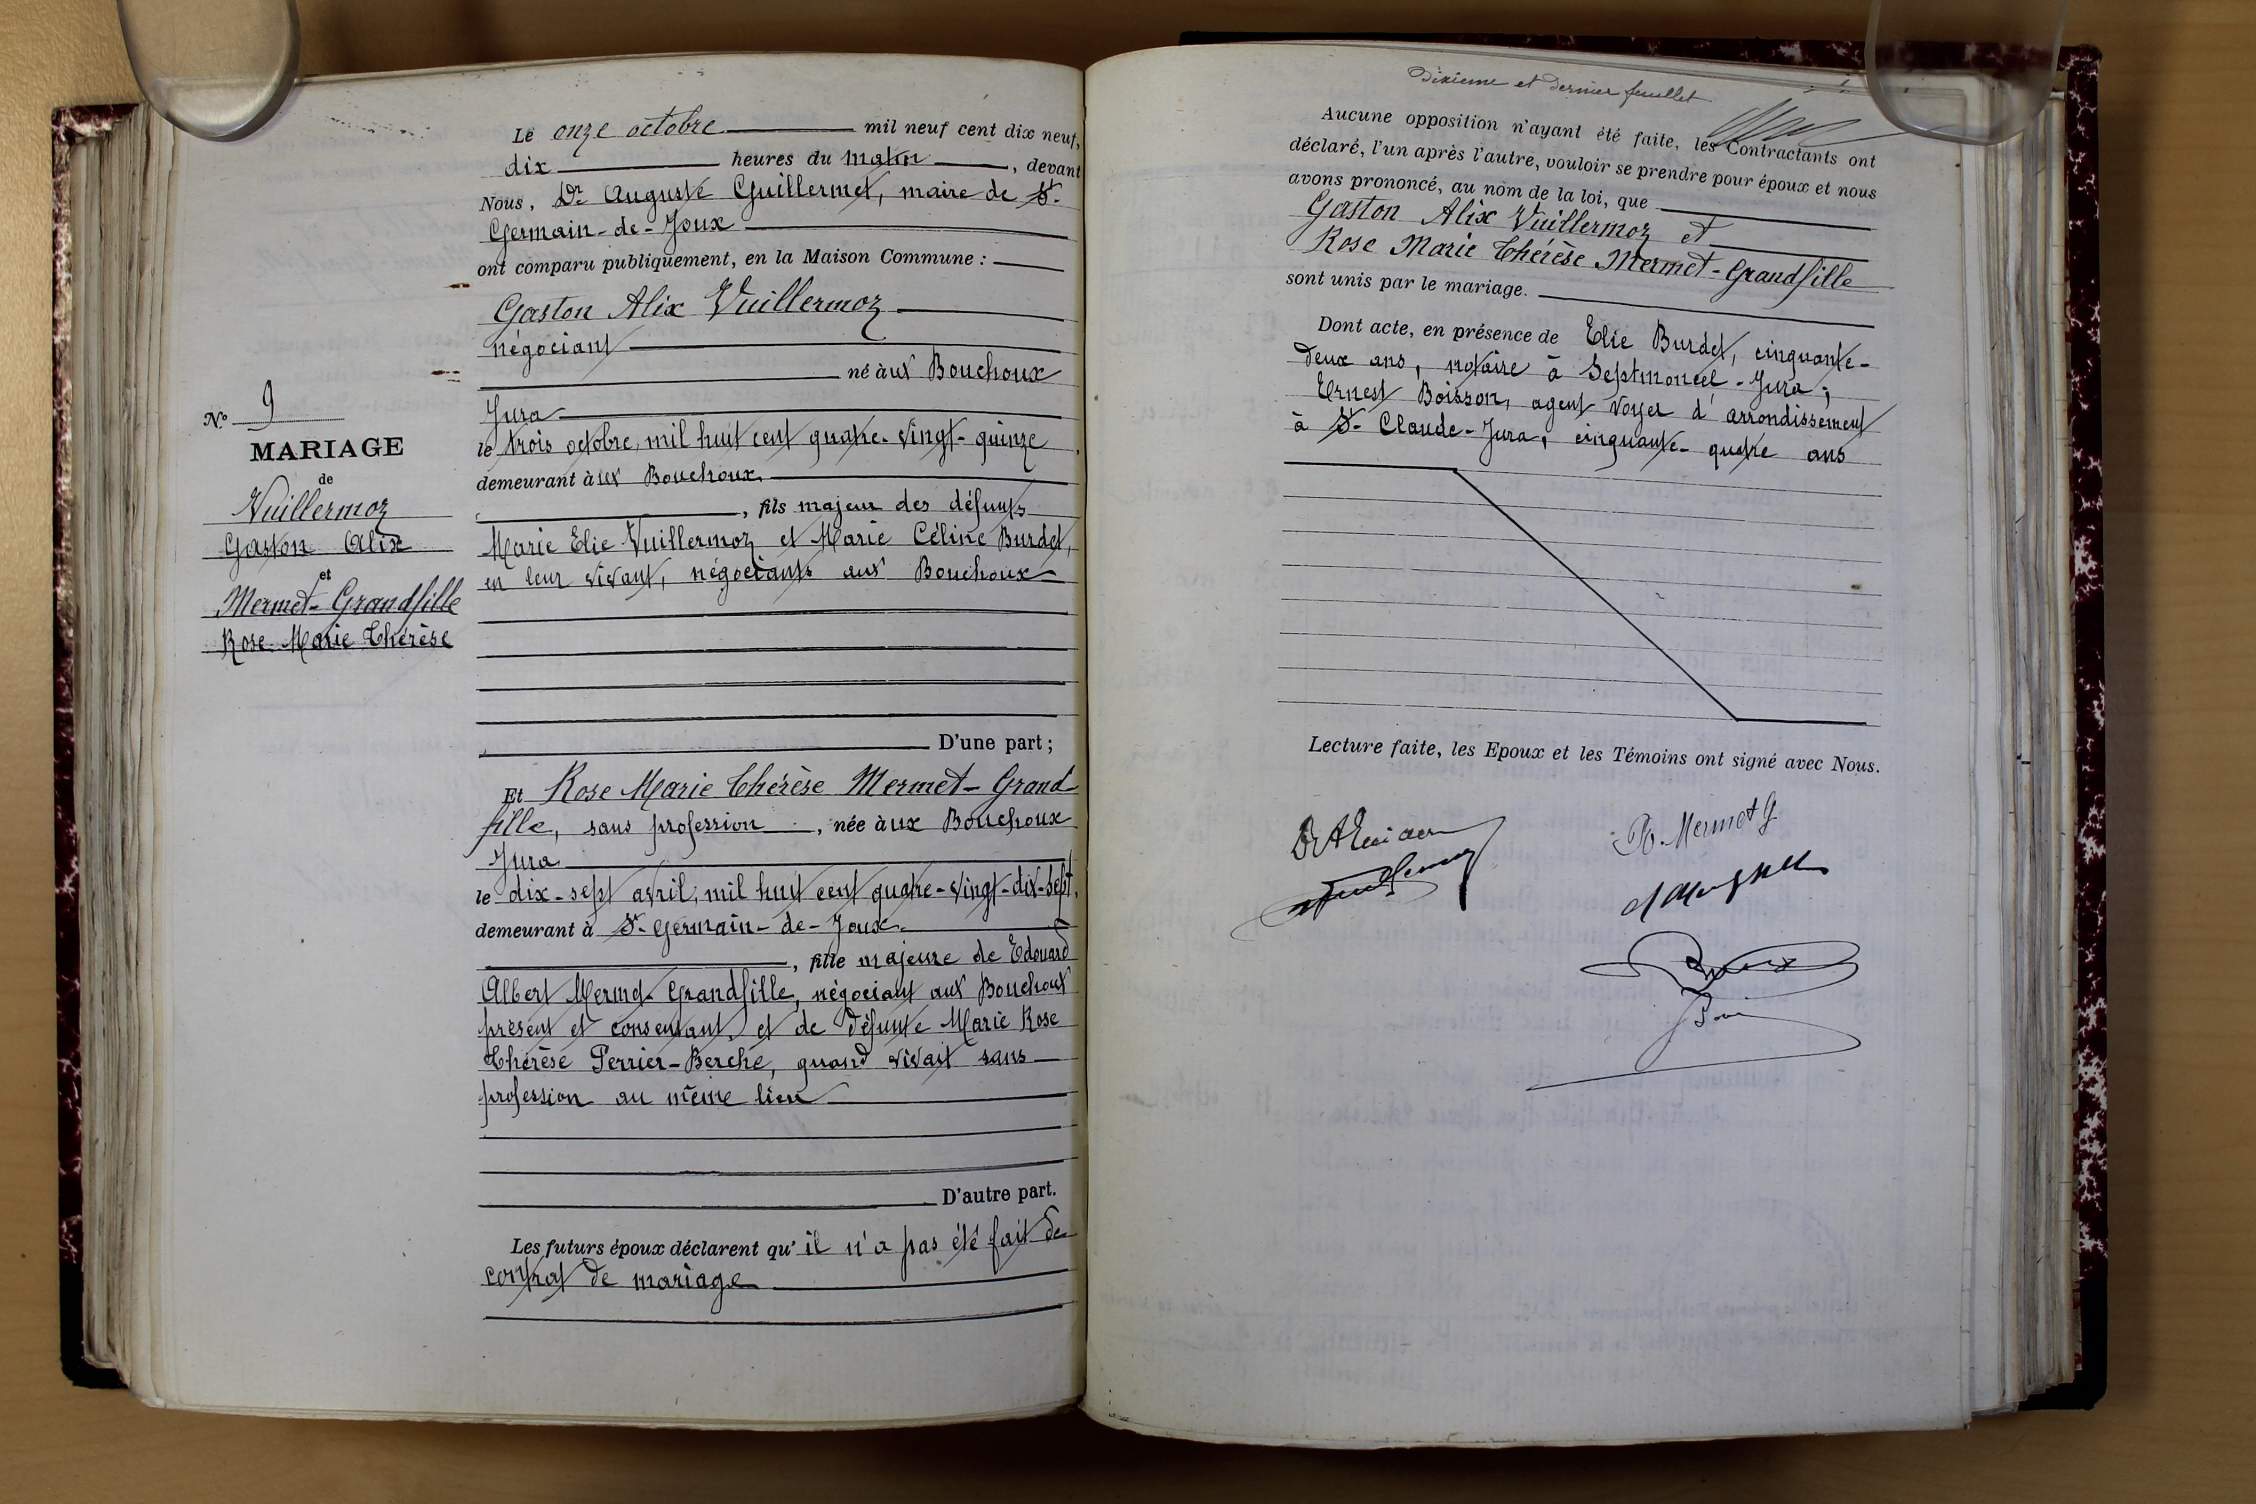 N° 9
MARIAGE
de
Vuillermoz
Gaston Alix
et
Mermet-Grandfille
Rose Marie Thérèse
Le onze octobre mil neuf cent dix neuf,
dix heures du matin, devant
Nous, Dr Auguste Guillermet, maire de St-
Germain-de-Joux
ont comparu publiquement, en la Maison Commune :
Gaston Alix Vuillermoz
négociant
né aux Bouchoux
Jura
le trois octobre mil huit cent quatre-vingt-quinze,
demeurant aux Bouchoux
, fils majeur des défunts
Marie Elie Vuillermoz et Marie Céline Burdet,
en leur vivant, négociants aux Bouchoux
D'une part ;
Et Rose Marie Thérèse Mermet-Grand
fille, sans profession, née aux Bouchoux
Jura
le dix-sept avril, mil huit cent quatre-vingt-dix-sept,
demeurant à St-Germain-de-Joux.
, fille majeure de Edouard
Albert Mermet-Grandfille, négociant aux Bouchoux
présent et consentant, et de défunte Marie Rose
Thérèse Perrier-Berche, quand vivait sans
profession au même lieu
D'autre part.
Les futurs époux déclarent qu'il n'a pas été fait de
contrat de mariage
Dixième et dernier feuillet
Aucune opposition n'ayant été faite, les Contractants ont
déclaré, l'un après l'autre, vouloir se prendre pour époux et nous
avons prononcé, au nom de la loi, que
Gaston Alix Vuillermoz et
Rose Marie Thérèse Mermet-Grandfille
sont unis par le mariage.
Dont acte, en présence de Elie Burdet, cinquante-
deux ans, notaire à Septmoncel-Jura ;
Ernest Boisson, agent voyer d'arrondissement
à St-Claude-Jura, cinquante-quatre ans
Lecture faite, les Epoux et les Témoins ont signé avec Nous.
Mermet G.